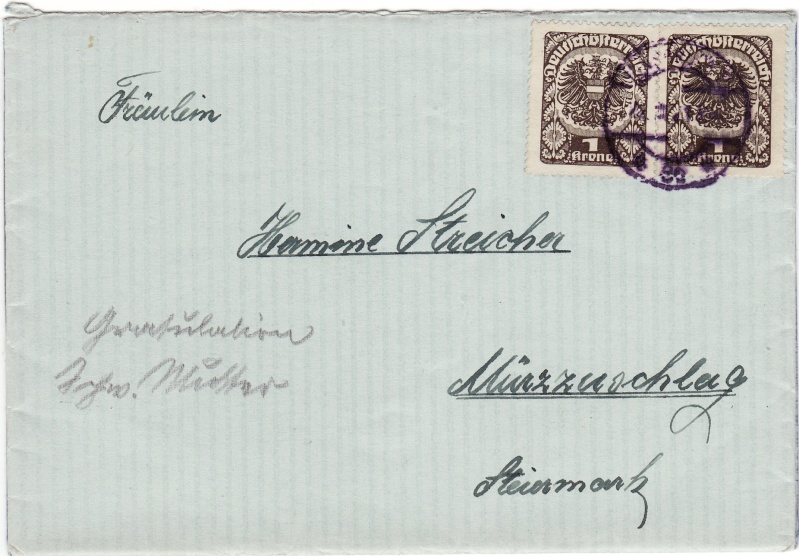 Deutschösterreich Deutschösterreich
1 1
Krone Krone
Fräulein
Hermine Streicher
Gratulation
Schw. Mutter
Mürzzuschlag
Steiermark